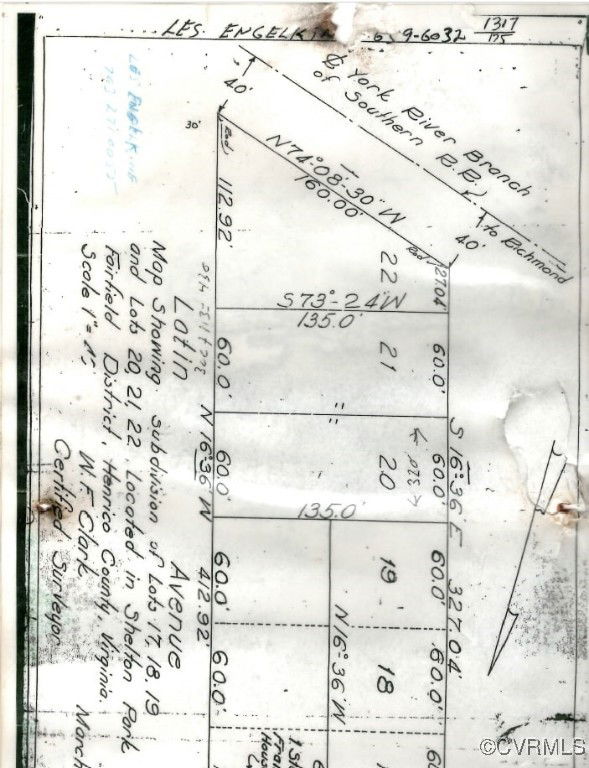 LES. ENGELKIN 9-6032 1317
175
℄ York River Branch
of Southern R.R.
to Richmond
40'
40'
30'
Rod
Rod
N74°-08'-30" W
160.00'
112.92'
27.04'
22
S73°-24'W
135.0'
60.0'
21
60.0'
"
"
60.0'
20
60.0'
320
S 16°-36' E 327.04'
N 16°36' W 412.92'
135.0'
60.0'
19
60.0'
N 16°36' W
60.0'
18
60.0'
Latin Avenue
Map Showing subdivision of Lots 17, 18 19
and Lots 20, 21, 22, Located in Shelton Park
Fairfield District, Henrico County, Virginia.
Scale 1"=
W.F. Clark
Certified Surveyor
March
1 St
Fram
Hous
©CVRMLS